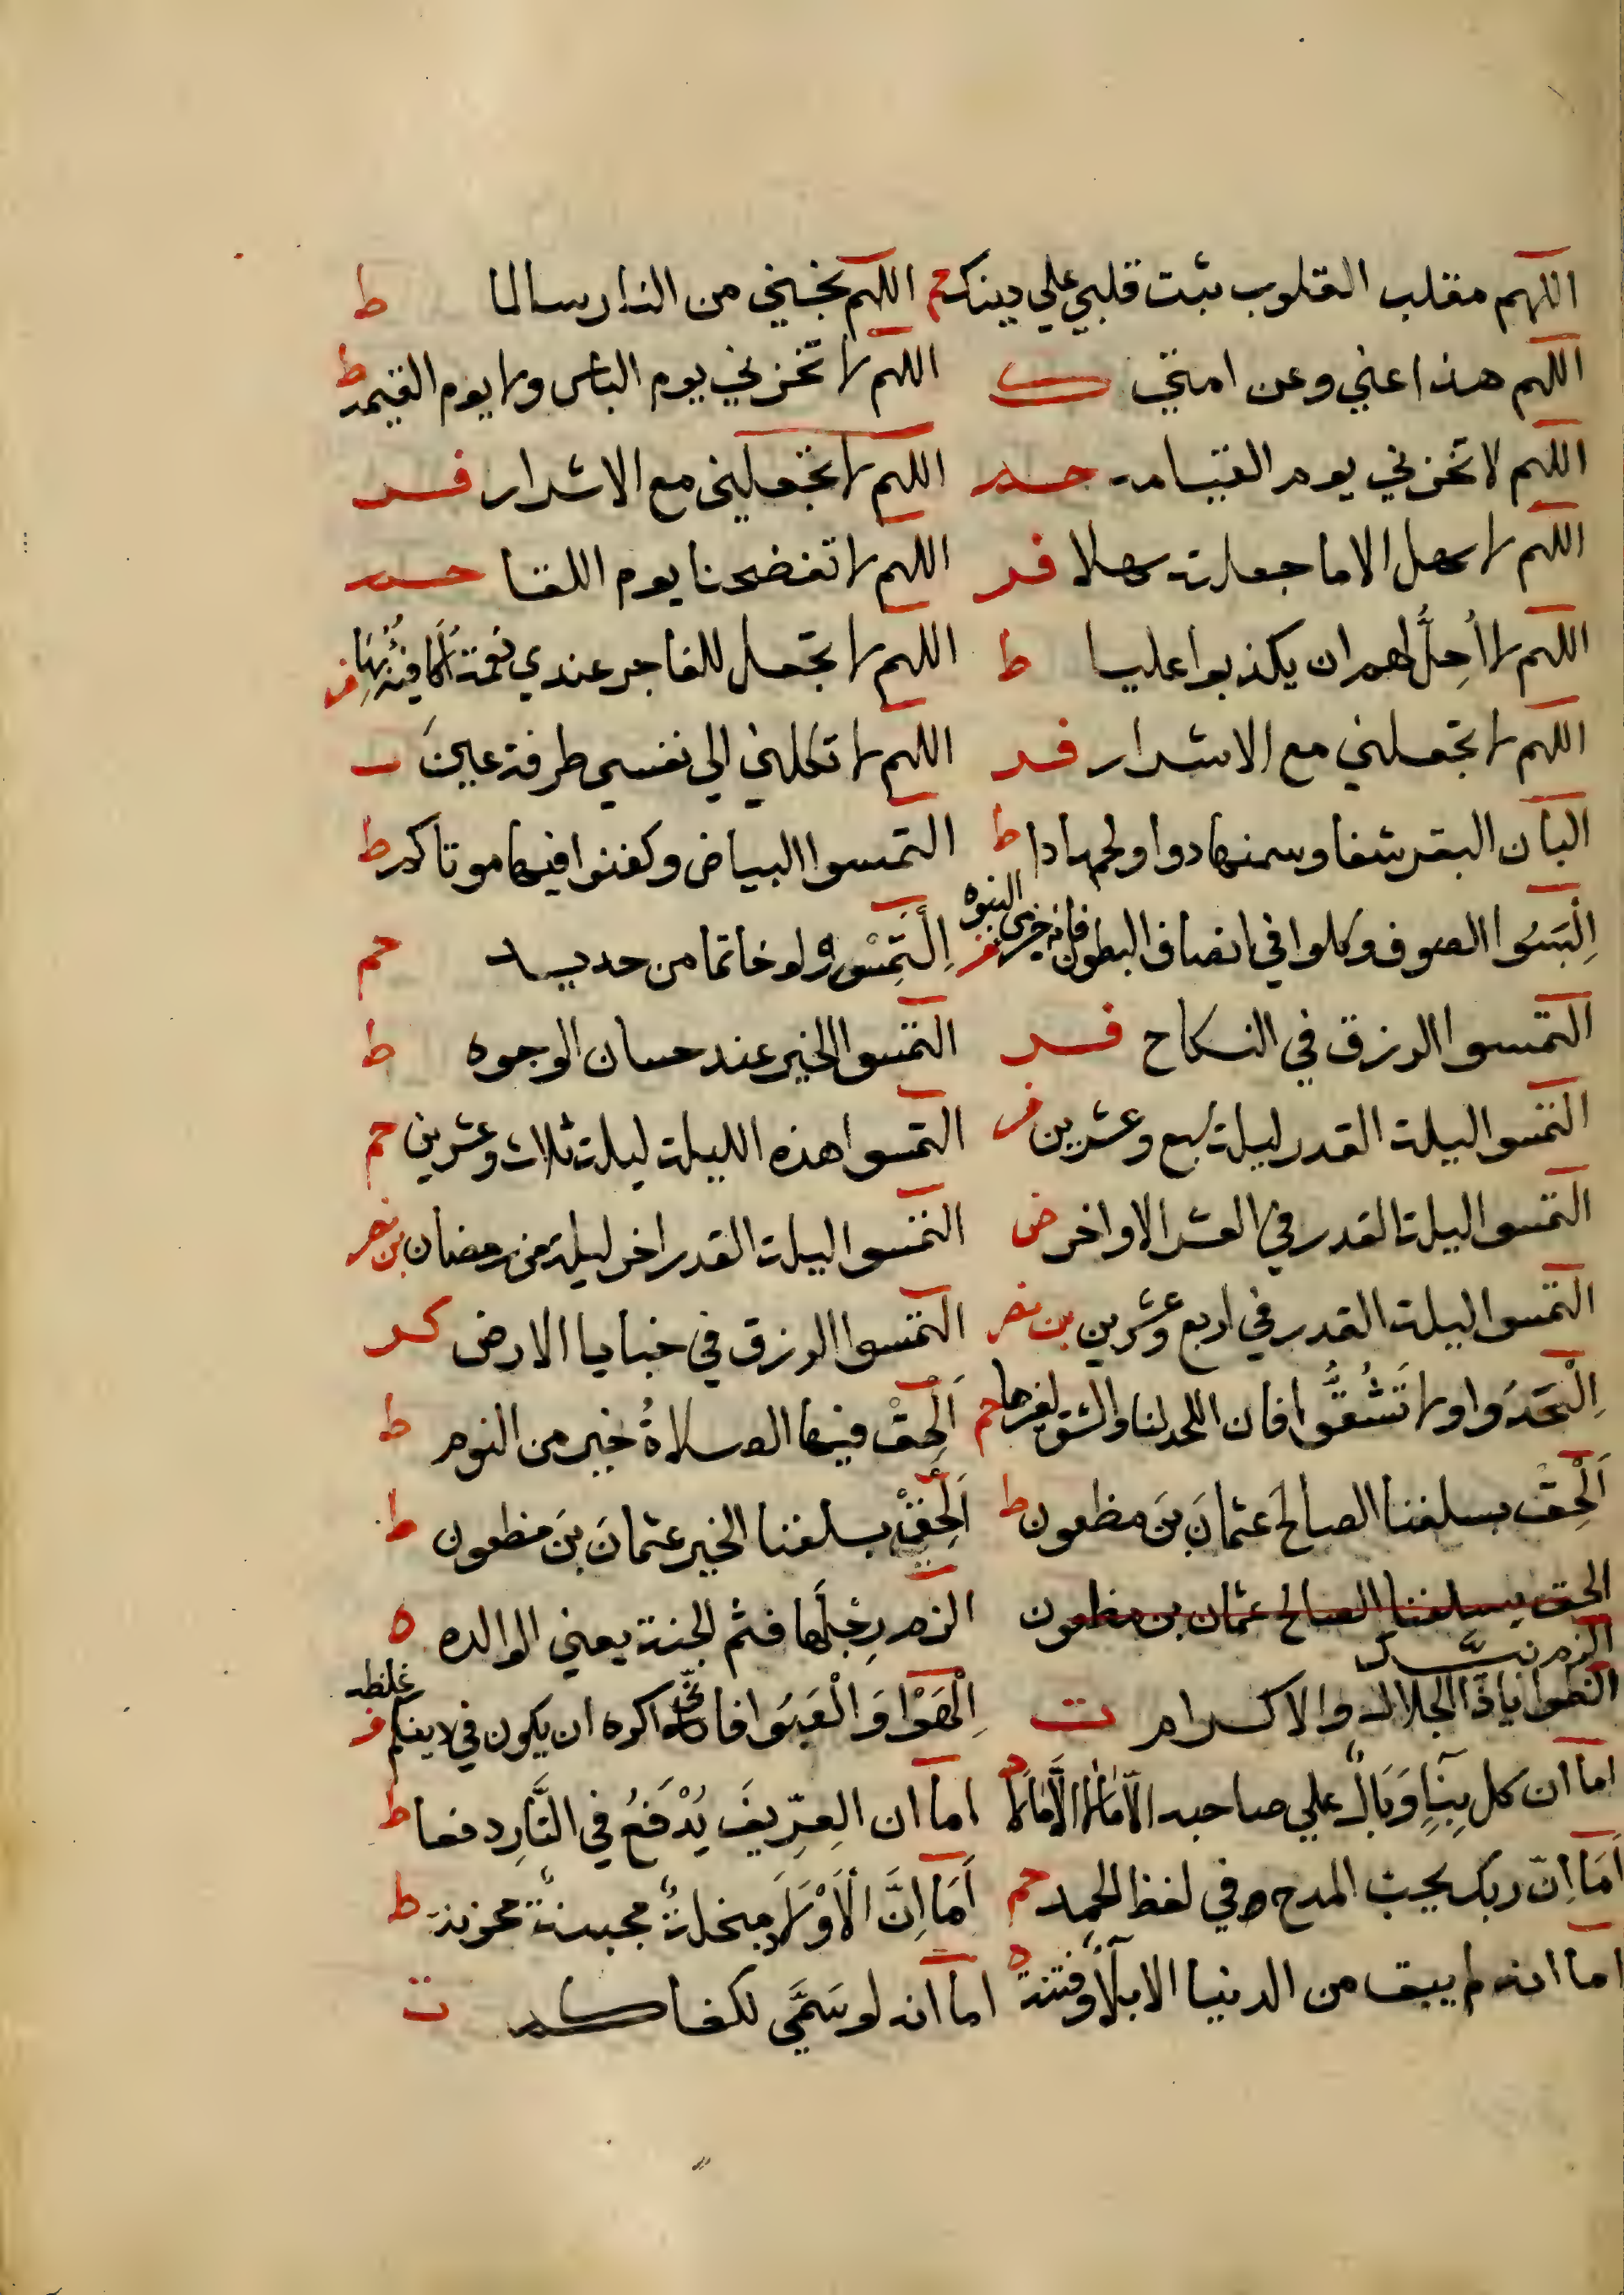 اللهم مقلب القلوب ثبت قلبي علي دينك حم اللهم نجني من النار سالما ط
اللهم هذا عني وعن امتي ك اللهم لا تخزني يوم الباس ولا يوم القيمة ط
اللهم لا تخزني يوم القيامة حد اللهم لا تجعلني مع الاشرار فد
اللهم لا سهل الا ما جعلته سهلا فد اللهم لا تفضحنا يوم اللقا حد
اللهم لا أُحِلُّ لهم ان يكذبوا عليا ط اللهم لا تجعل للفاجر عندي نعمة أكافيه بها فر
اللهم لا تجعلني مع الاشرار فد اللهم لا تكلني الي نفسي طرفة عين
البان البقر شفا وسمنها دوا ولحمها دا ط التمسوا البياض وكفنوا فيها موتاكم ط
اِلْبَسُوا الصوف وكلوا في انصاف البطون فانه جزء من النبوه فر اِلْتَمِسْ ولو خاتما من حديد حم
التمسوا الرزق في النكاح فد التمسوا الخير عند حسان الوجوه ط
التمسوا ليلة القدر ليلة سبع وعشرين فر التمسوا هذه الليلة ليلة ثلاث وعشرين حم
التمسوا ليلة القدر في العشر الاواخر ض التمسوا ليلة القدر اخر ليلة من رمضان بن نصر
التمسوا ليلة القدر في اربع وعشرين بن نصر التمسوا الرزق في خبايا الارض كر
اِلْحَدَوا ولا تَشُقُّوا فان اللحد لنا والشق لغيرنا حم اَلْحِقْ فيها الصلاةُ خير من النوم ط
اَلْحِقْ بسلفنا الصالح عثمانَ بنَ مظعون ط اَلْحِقْ بسلفنا الخير عثمانَ بنَ مظعون ط
الحق بسلفنا الصالح عثمان بن مظعون الزم رِجْلَها فثم الجنة يعني الوالده ه
الزم بيتك
الظوا ياذا الجلال والاكرام ت اِلْهَوْا وَالْعَبَوا فاني اكره ان يكون في دينكم غلظه فر
اما ان كل بِنَاءٍ وَبَالٌ علي صاحبه الا مالا الا مالا د اما ان العِرِّيفَ يُدْفَعُ في النَّارِ دفعا ط
اَمَا اِنّ ربك يحب المدح وفي لفظ الحمد حم اَمَا اِنَّ الْاَوْلَادَ مبخلةٌ مجبنةٌ محزنة ط
اما انه لم يبق من الدنيا الا بلاءٌ وفتنة ه اما انه لو سَمَّي لكفاكم ت